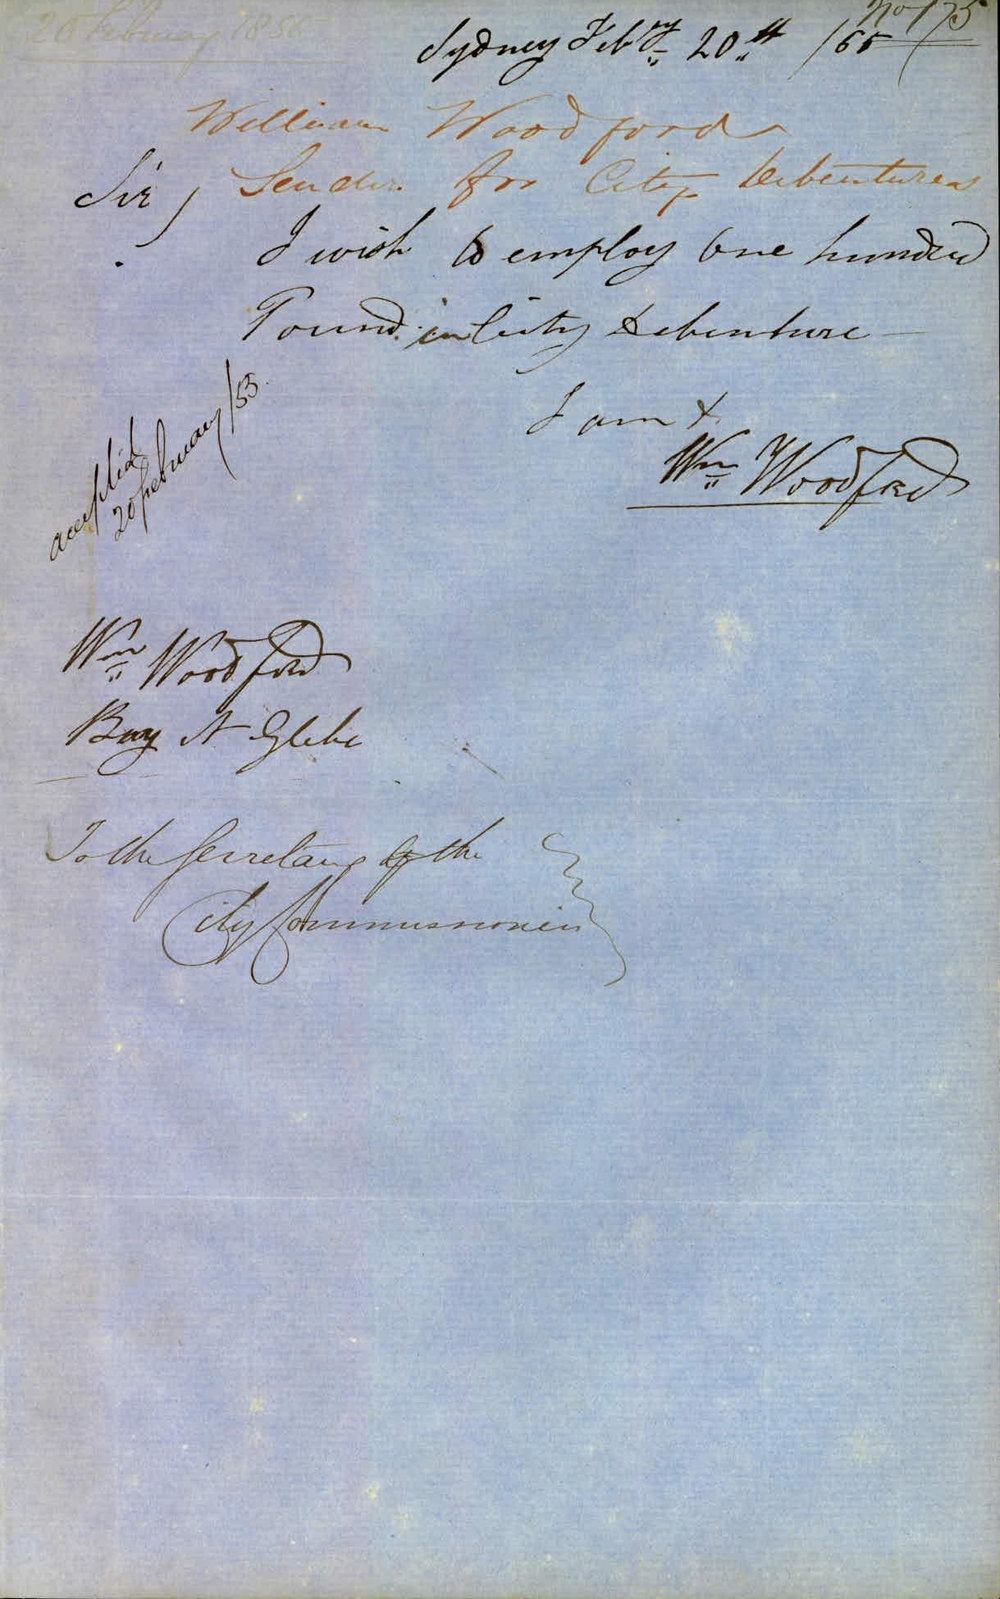 20 February 1855
No 175
Sydney Feby 20th /55
William Woodford
Tender for City Debentures
Sir,
I wish to employ One hundred
Pound in City Debenture
I am &
Wm Woodford
accepted
20 February /55
Wm Woodford
Bay St Glebe
To the Secretary of the
City Commissioners